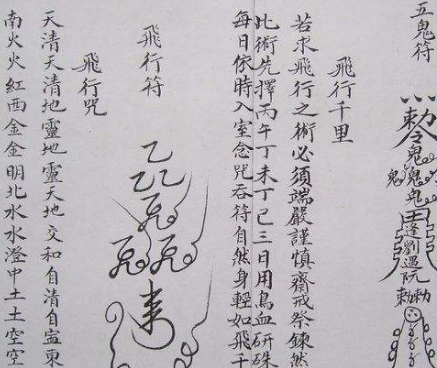 五鬼符
敕令
鬼鬼鬼
鬼
王逢劉遇阮
敕敕
飛行千里
若求飛行之術必須端嚴謹慎齋戒祭鍊然
此術先擇丙午丁未丁巳三日用鳥血研硃
每日依時入室念咒吞符自然身輕如飛千
飛行符
飛行咒
天清天清地靈地靈天地交和自清自寍東
南火火紅西金金明北水水澄中土土空空